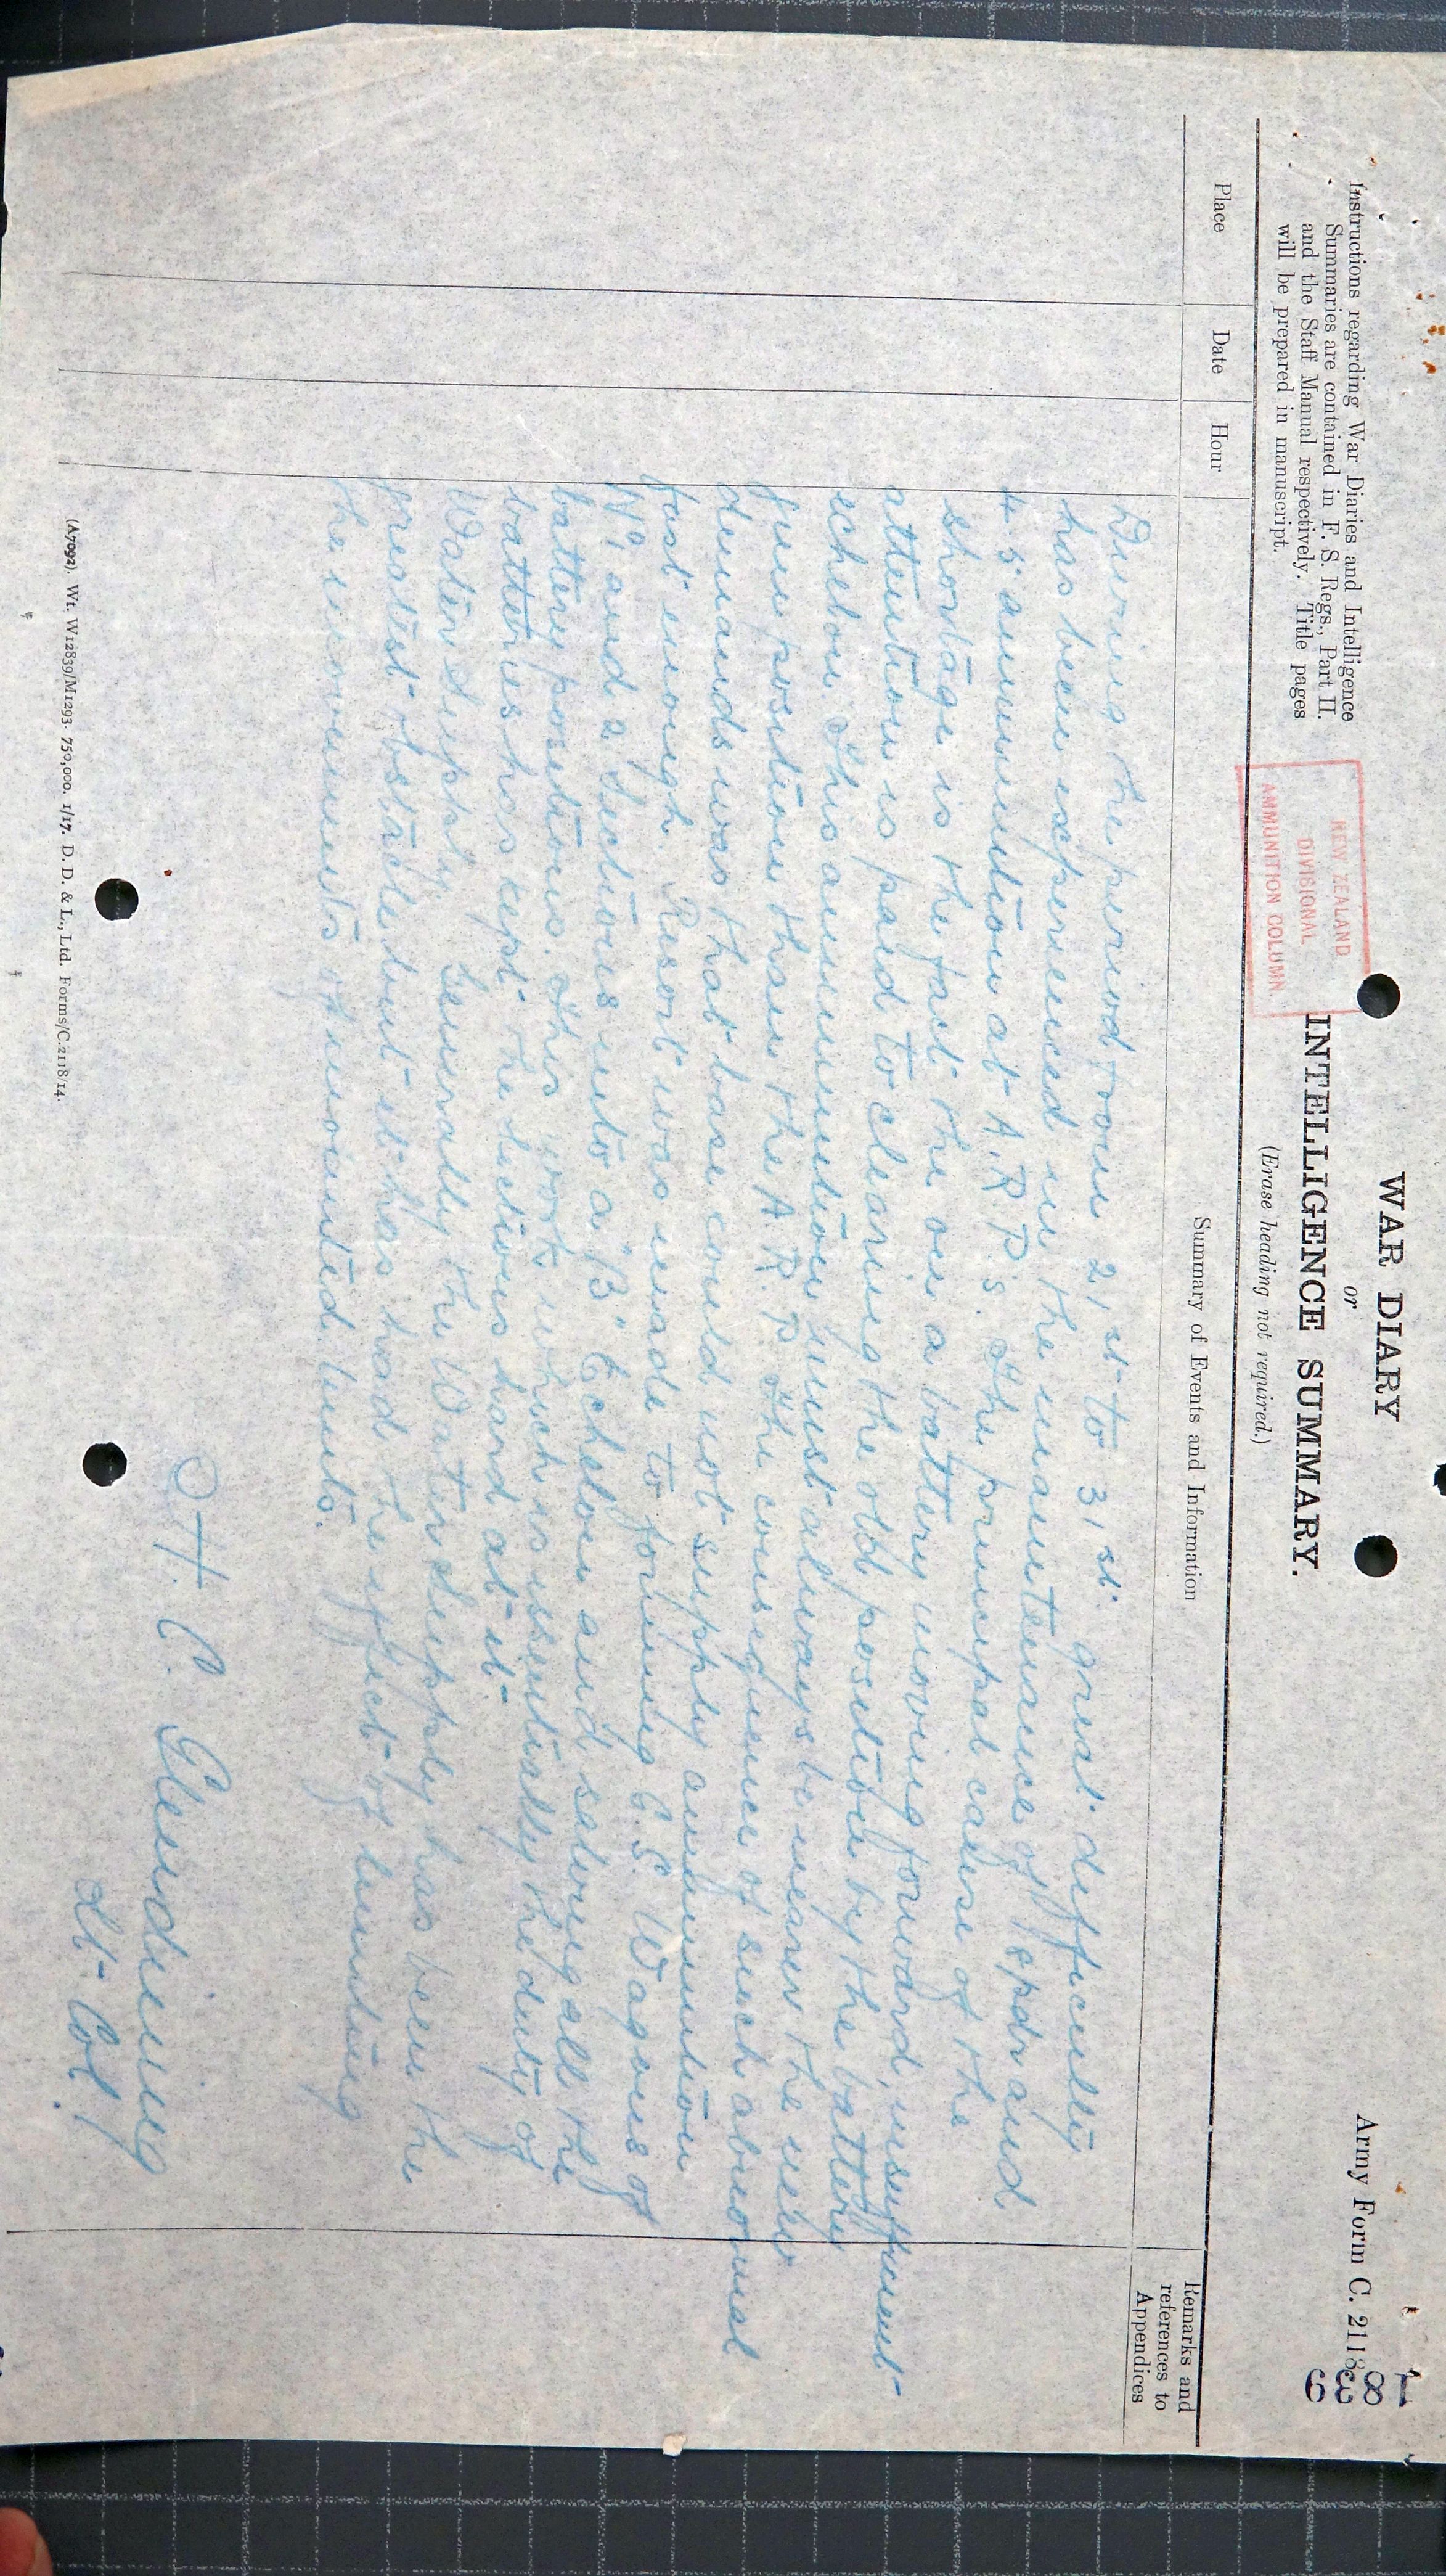 Army Form C. 2118.
1839
WAR DIARY
or
INTELLIGENCE SUMMARY.
(Erase heading not required.)
Instructions regarding War Diaries and Intelligence
Summaries are contained in F. S. Regs., Part II.
and the Staff Manual respectively. Title pages
will be prepared in manuscript.
NEW ZEALAND
DIVISIONAL
AMMUNITION COLUMN.
Place
Date
Hour
Summary of Events and Information
Remarks and
references to
Appendices
During the period from 21st to 31st great difficulty
has been experienced in the maintenance of 18pdr and
4.5 ammunition at A.R.P's. The principal cause of the
shortage is the fact the on a battery moving forward, insufficient
attention is paid to clearing the old position by the battery
echelon. This ammunition must always be nearer the new
gun position than the A.R.P. The consequence of such abnormal
demands was that base could not supply ammunition
fast enough. Resort was made to forming G.S. Wagons of
No 1 and 2 Sections into a "B" Echelon and salving all the
battery positions. This work which is essentially the duty of
batteries has kept the Sections hard at it.
Water Supply. Generally the Water Supply has been the
greatest obstacle but it has had the effect of limiting
the movements of mounted Units.
H. C. Glendining
Lt-Col.
(A7092). Wt. W12839/M1293. 750,000. 1/17. D. D. & L., Ltd. Forms/C.2118/14.